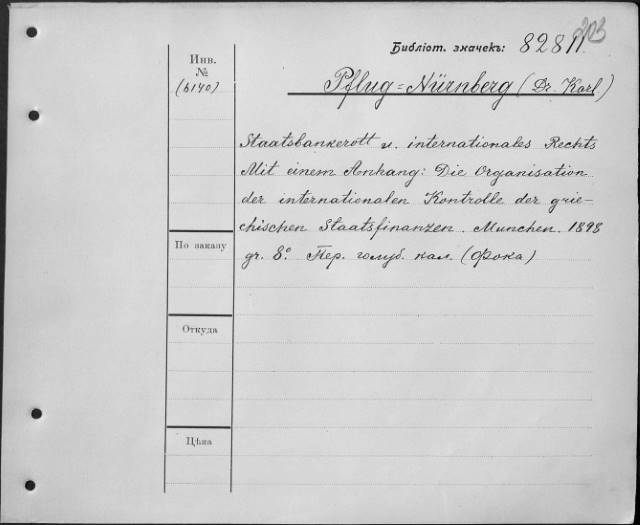 203
Библіот. значекъ: 82811
Инв.
№
(6140)
Pflug=Nürnberg (Dr. Karl)
Staatsbankerott u. internationales Rechts
Mit einem Anhang: Die Organisation
der internationalen Kontrolle der grie-
chischen Staatsfinanzen. Munchen. 1898
gr. 8.º Пер. голуб. кал. (Фока)
По заказу
Откуда
Цѣна